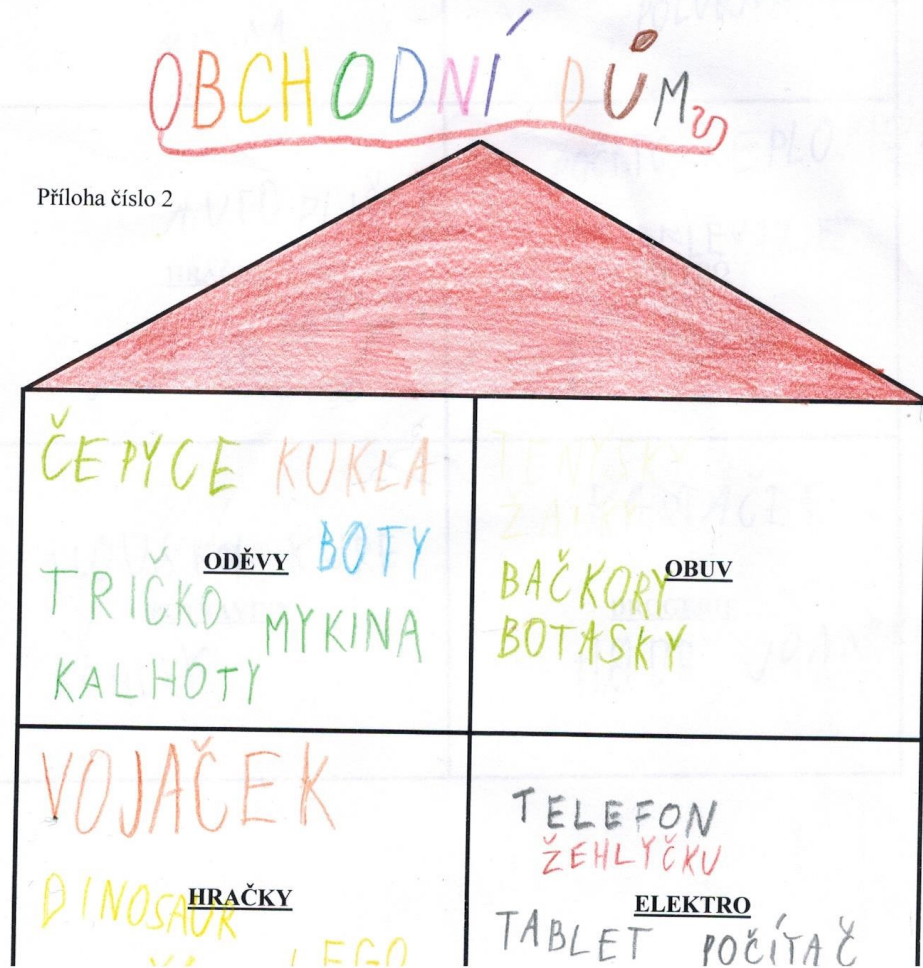 OBCHODNÍ DŮM
Příloha číslo 2
ČEPYCE KUKLA
ODĚVY BOTY
TRIČKO MYKINA
KALHOTY
TENYSKY
OBUV
BAČKORY
BOTASKY
VOJAČEK
DINOSAUR
HRAČKY
LEGO
TELEFON
ŽEHLYČKU
ELEKTRO
TABLET POČÍTAČ